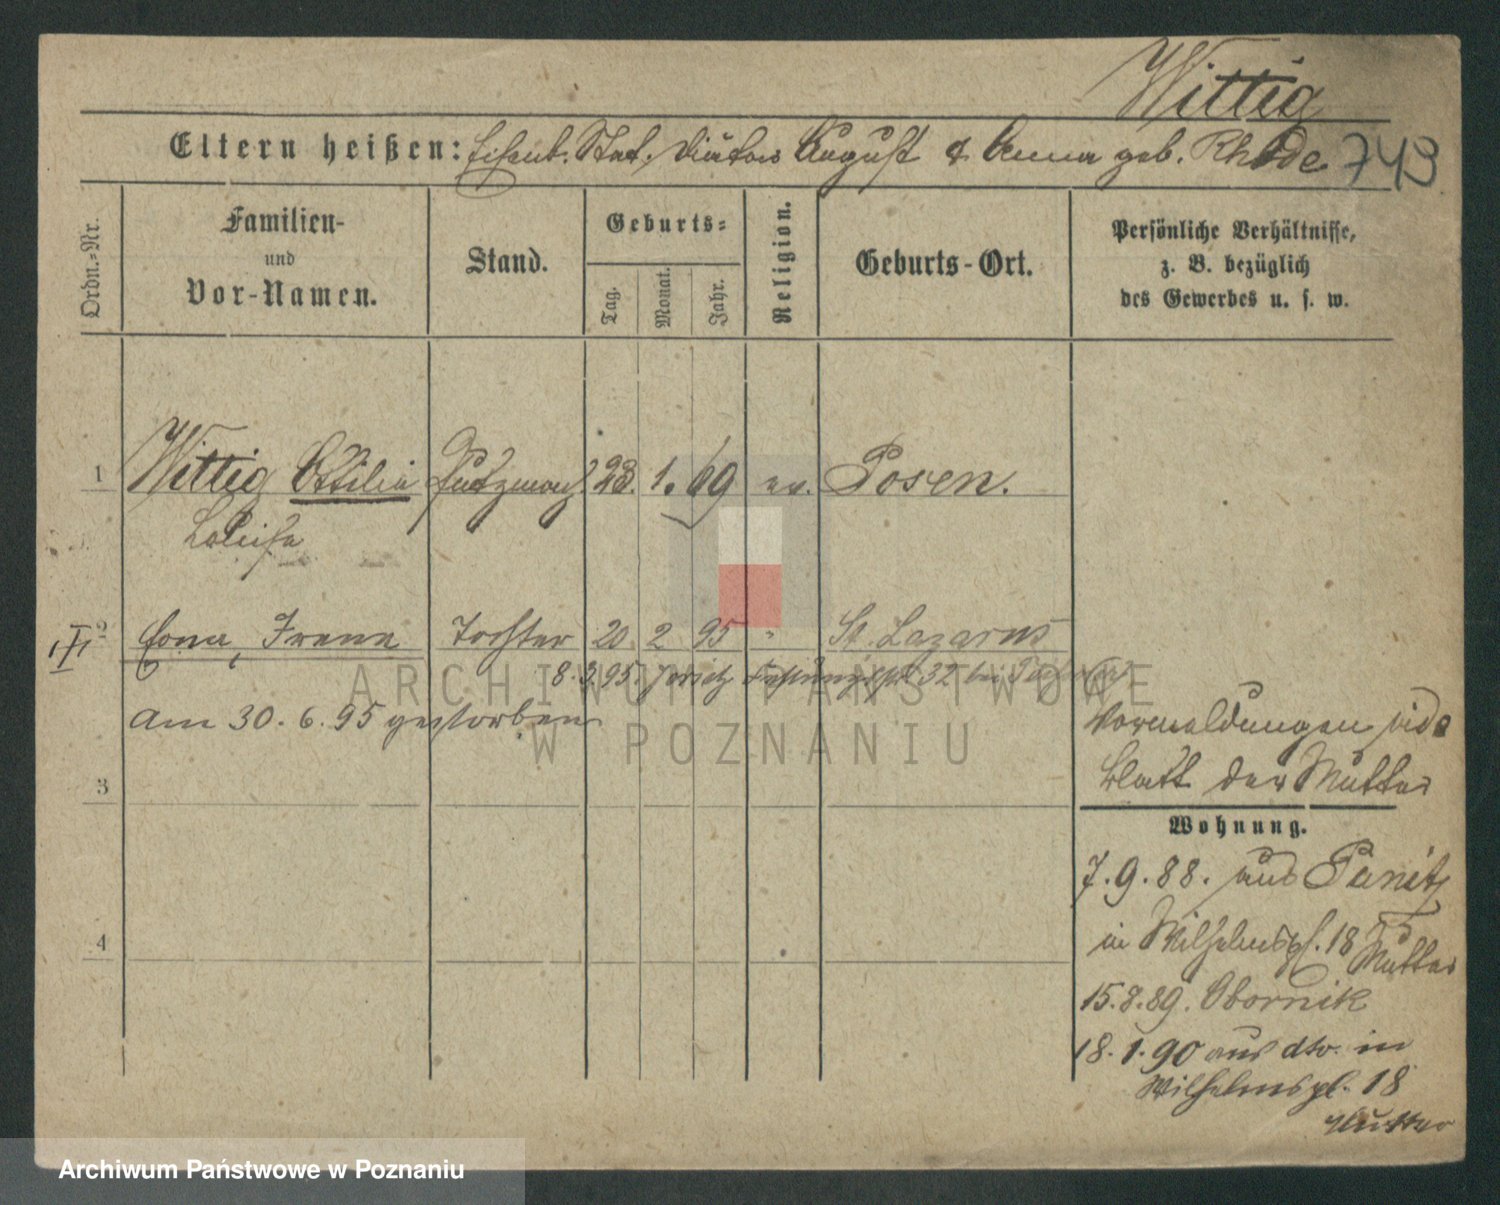 Wittig
Eltern heißen: Eisenb. Stat. Diätar August & Anna geb. Rhode 743
Ordn.-Nr.
Familien-
und
Vor-Namen.
Stand.
Geburts-
Tag.
Monat.
Jahr.
Religion.
Geburts-Ort.
Persönliche Verhältnisse,
z. B. bezüglich
des Gewerbes u. s. w.
1 Wittig Ottilie Putzmach 23. 1. 69 ev. Posen.
Luise
2 Irene Tochter 20 2 95 " St. Lazarus
8. 3. 95. 32 bei
am 30. 6. 95 gestorben
Vormeldungen vide
Blatt der Mutter
3
Wohnung.
7. 9. 88. aus Punitz
in Wilhelmspl. 18
Mutter
4
15. 8. 89. Obornik
18. 1. 90 aus dto. in
Wilhelmspl. 18
Mutter
ARCHIWUM PAŃSTWOWE
W POZNANIU
Archiwum Państwowe w Poznaniu